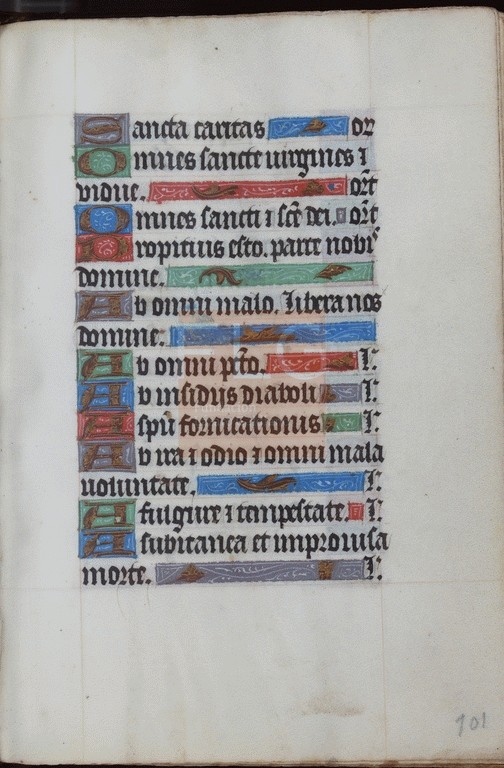 Sancta caritas or
Omnes sancte uirgines ⁊
vidue. ort
Omnes sancti ⁊ scē dei. ort
Propitius esto. parce nobis
domine.
Ab omni malo. libera nos
domine.
Ab omni pctō. l:
Ab insidijs diaboli l:
A spū fornicationis l:
Ab ira ⁊ odio ⁊ omni mala
uoluntate. l:
A fulgure ⁊ tempestate. l:
A subitanea et improuisa
morte. l:
101